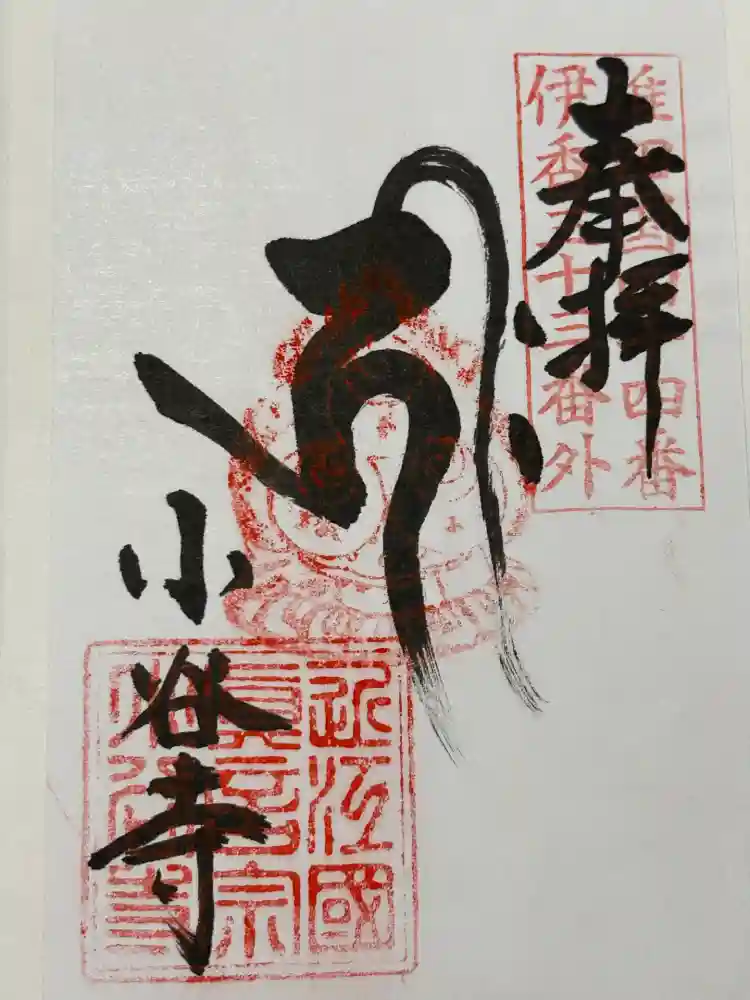 奉拝
准四国四十四番
伊香三十三番外
小谷寺
近江國
真言宗
小谷寺